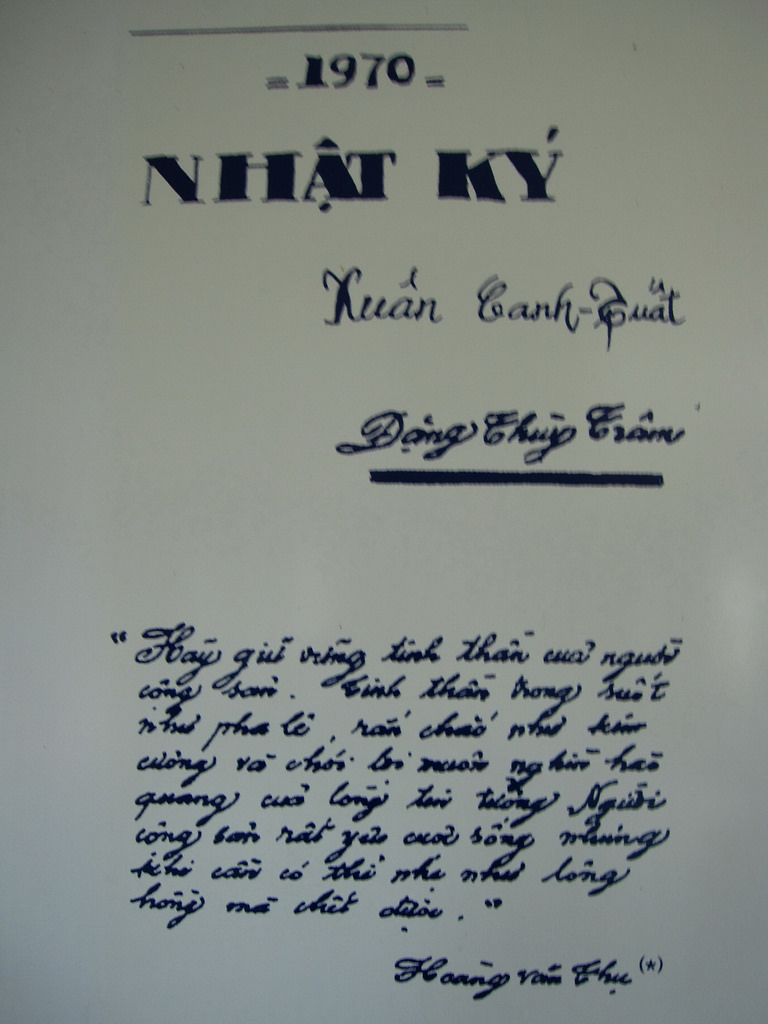 = 1970 =
NHẬT KÝ
Xuân Canh-Tuất
Đặng Thùy Trâm
"Hãy giữ vững tinh thần của người
cộng sản. Tinh thần trong suốt
như pha lê, rắn chắc như kim
cương và chói lọi muôn nghìn hào
quang của lòng tin tưởng Người
cộng sản rất yêu cuộc sống nhưng
khi cần có thể nhẹ như lông
hồng mà chết được."
Hoàng Văn Thụ (*)